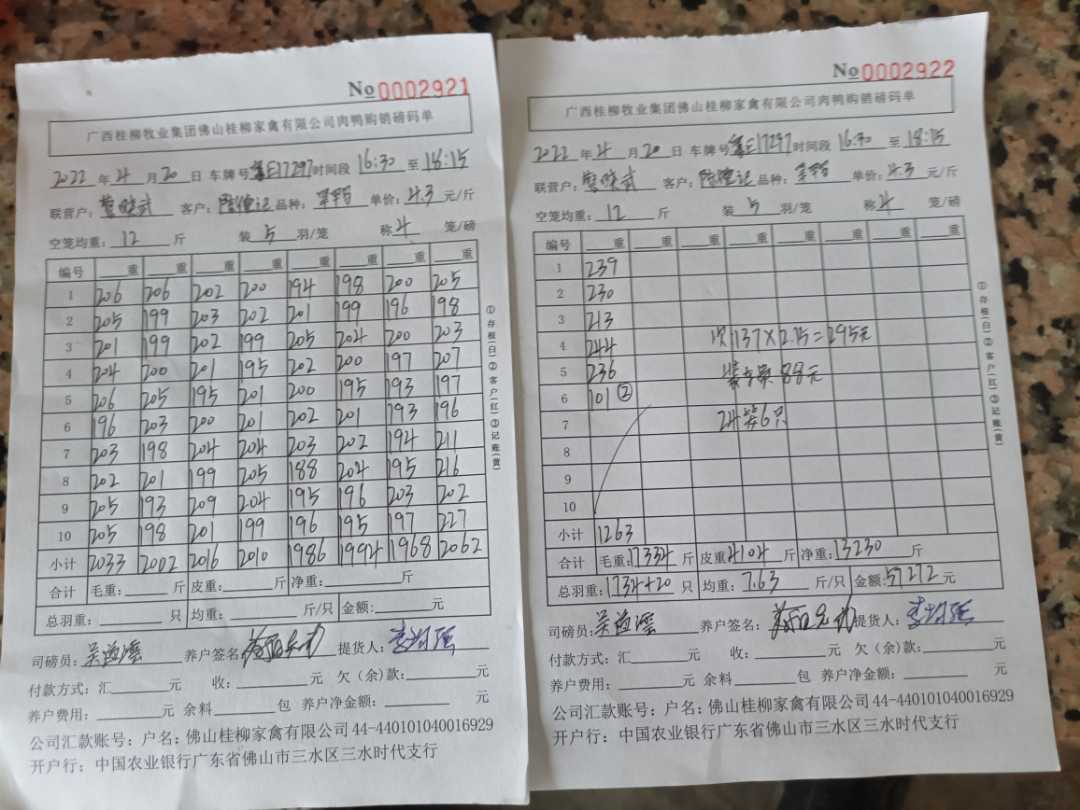 No 0002921
广西桂柳牧业集团佛山桂柳家禽有限公司肉鸭购销磅码单
2022 年 4 月 20 日 车牌号 粤E17297 时间段 16:30 至 18:15
联营户: 客户: 陈德记 品种: 单价: 4.3 元/斤
空笼均重: 12 斤 装 5 羽/笼 称 4 笼/磅
编号 重 重 重 重 重 重 重 重
1 206 206 202 200 194 198 200 205
2 205 199 203 202 201 199 196 198
3 201 199 202 199 205 204 200 203
4 204 200 201 195 202 200 197 207
5 206 205 195 201 200 195 193 197
6 196 203 200 201 202 201 193 196
7 203 198 204 204 203 202 194 211
8 202 201 199 205 188 204 195 216
9 205 193 209 204 195 196 203 202
10 205 198 201 199 196 195 197 227
小计 2033 2002 2016 2010 1986 1994 1968 2062
合计 毛重: 斤 皮重: 斤 净重: 斤
总羽重: 只 均重: 斤/只 金额: 元
司磅员: 养户签名: 提货人:
付款方式: 汇 元 收: 元 欠(余)款: 元
养户费用: 元 余料 包 养户净金额: 元
公司汇款账号: 户名: 佛山桂柳家禽有限公司 44-440101040016929
开户行: 中国农业银行广东省佛山市三水区三水时代支行
①存根(白)②客户(红)③记账(黄)
No 0002922
广西桂柳牧业集团佛山桂柳家禽有限公司肉鸭购销磅码单
2022 年 4 月 20 日 车牌号 粤E17297 时间段 16:30 至 18:15
联营户: 客户: 陈德记 品种: 单价: 4.3 元/斤
空笼均重: 12 斤 装 5 羽/笼 称 4 笼/磅
编号 重 重 重 重 重 重 重 重
1 239
2 230
3 213
4 244 次137×2.15=295元
5 236 88元
6 101 ②
7 24 6只
8
9
10
小计 1263
合计 毛重: 17334 斤 皮重: 4104 斤 净重: 13230 斤
总羽重: 1734+20 只 均重: 7.63 斤/只 金额: 57272 元
司磅员: 养户签名: 提货人:
付款方式: 汇 元 收: 元 欠(余)款: 元
养户费用: 元 余料 包 养户净金额: 元
公司汇款账号: 户名: 佛山桂柳家禽有限公司 44-440101040016929
开户行: 中国农业银行广东省佛山市三水区三水时代支行
①存根(白)②客户(红)③记账(黄)